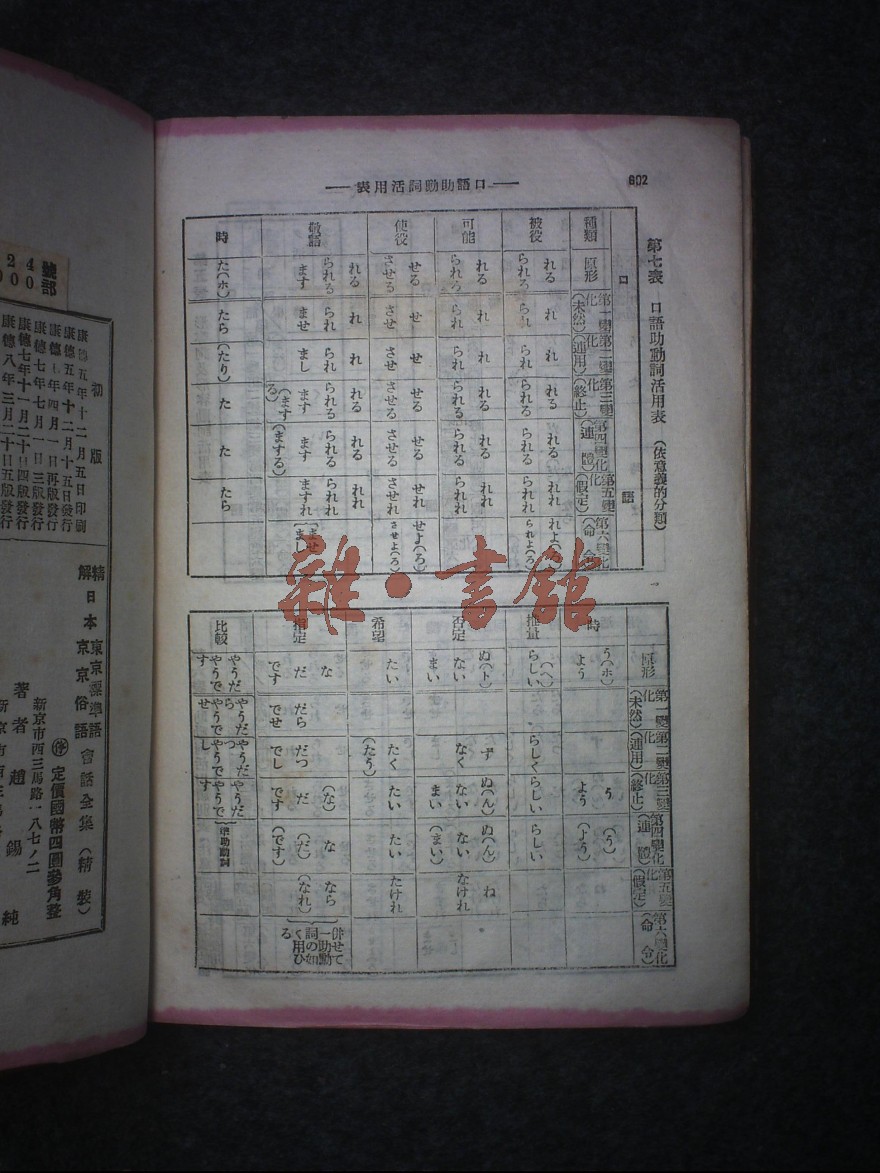 602
──口語助動詞活用表──
第七表 口語助動詞活用表 (依意義的分類)
口語
種類 原形 第一變化(未然) 第二變化(連用) 第三變化(終止) 第四變化(連體) 第五變化(假定) 第六變化(命令)
被役 れる られる れ られ れ られ れる られる れる られる れれ られれ れよ(ろ) られよ(ろ)
可能 れる られる れ られ れ られ れる られる れる られる れれ られれ
使役 せる させる せ させ せ させ せる させる せる させる せれ させれ せよ(ろ) させよ(ろ)
敬語 れる られる ます れ られ ませ れ られ まし れる られる ます(まする) れる られる ます(まする) れれ られれ ますれ ませ まし
時 た(ホ) たら (たり) た た たら
原形 第一變化(未然) 第二變化(連用) 第三變化(終止) 第四變化(連體) 第五變化(假定) 第六變化(命令)
時 う(ホ) よう う よう (う) (よう)
推量 らしい(ヘ) らしく らしい らしい
否定 ぬ(ト) ない まい ず なく ぬ(ん) ない まい ぬ(ん) ない (まい) ね なけれ
希望 たい たく (たう) たい たい たけれ
指定 な だ です だら でせ だつ でし (な) だ です な (だ) (です) なら (なれ) 併せて一助動詞の如く用ひる
比較 やうだ やうです やうだら やうでせ やうだつ やうでし やうだ やうです
雜·書館
號部
24
000
初版
康德五年十二月五日印刷
康德五年十二月十五日發行
康德七年七月一日三版發行
康德七年十一月二十日四版發行
康德八年三月二十日五版發行
精解 東京標準語
日本京京俗語 會話全集(精裝)
定價國幣四圓參角整
新京市西三馬路一八七ノ二
著者 趙錫純